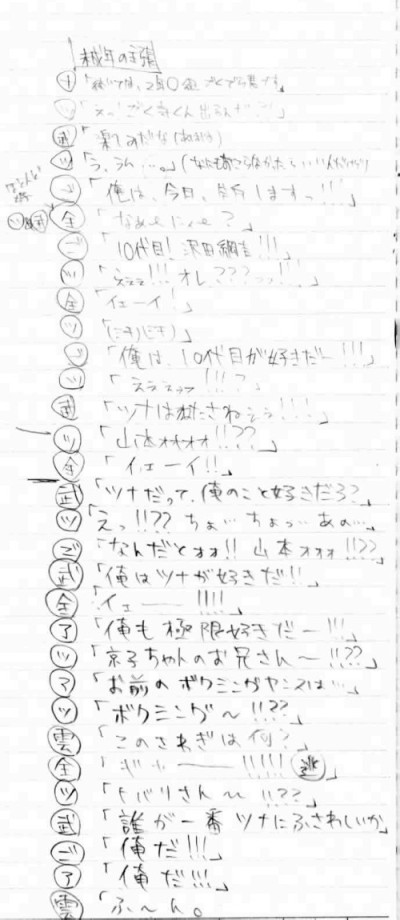 未成年の主張
ナ「続いては、2年 組
ツ「えっ!ごくでらくん出るんだ
武「楽しみだな
ツ「う、うん…。」
ご「俺は、今日、告白しますっ!!!」
全「なぁにぃ?」
ご「10代目!沢田綱吉!!!」
ツ「えええ!!!オレ???っ!!!」
全「イェーイ!」
ツ「(ドキ)(ドキ)」
ご「俺は、10代目が好きだー!!!」
ツ「えええっっ!!!?」
武「ツナはわたさねぇぞ!!!!」
ツ「山本ォォォォ!!??」
全「イェーイ!!」
武「ツナだって、俺のこと好きだろ?」
ツ「えっ!!??ちょ…ちょっ…あの…」
ご「なんだとォォ!!山本ォォォ!!??」
武「俺はツナが好きだ!!」
全「イェー!!!!」
了「俺も極限好きだー!!!」
ツ「京子ちゃんのお兄さん〜!!??」
了「お前のボクシングセンスは…」
ツ「ボクシング〜!!??」
雲「このさわぎは何?」
全「ギャー!!!!!(逃)」
ツ「ヒバリさん〜!!??」
武「誰が一番ツナにふさわしいか」
ご「俺だ!!!」
了「俺だ!!!」
雲「ふーん。